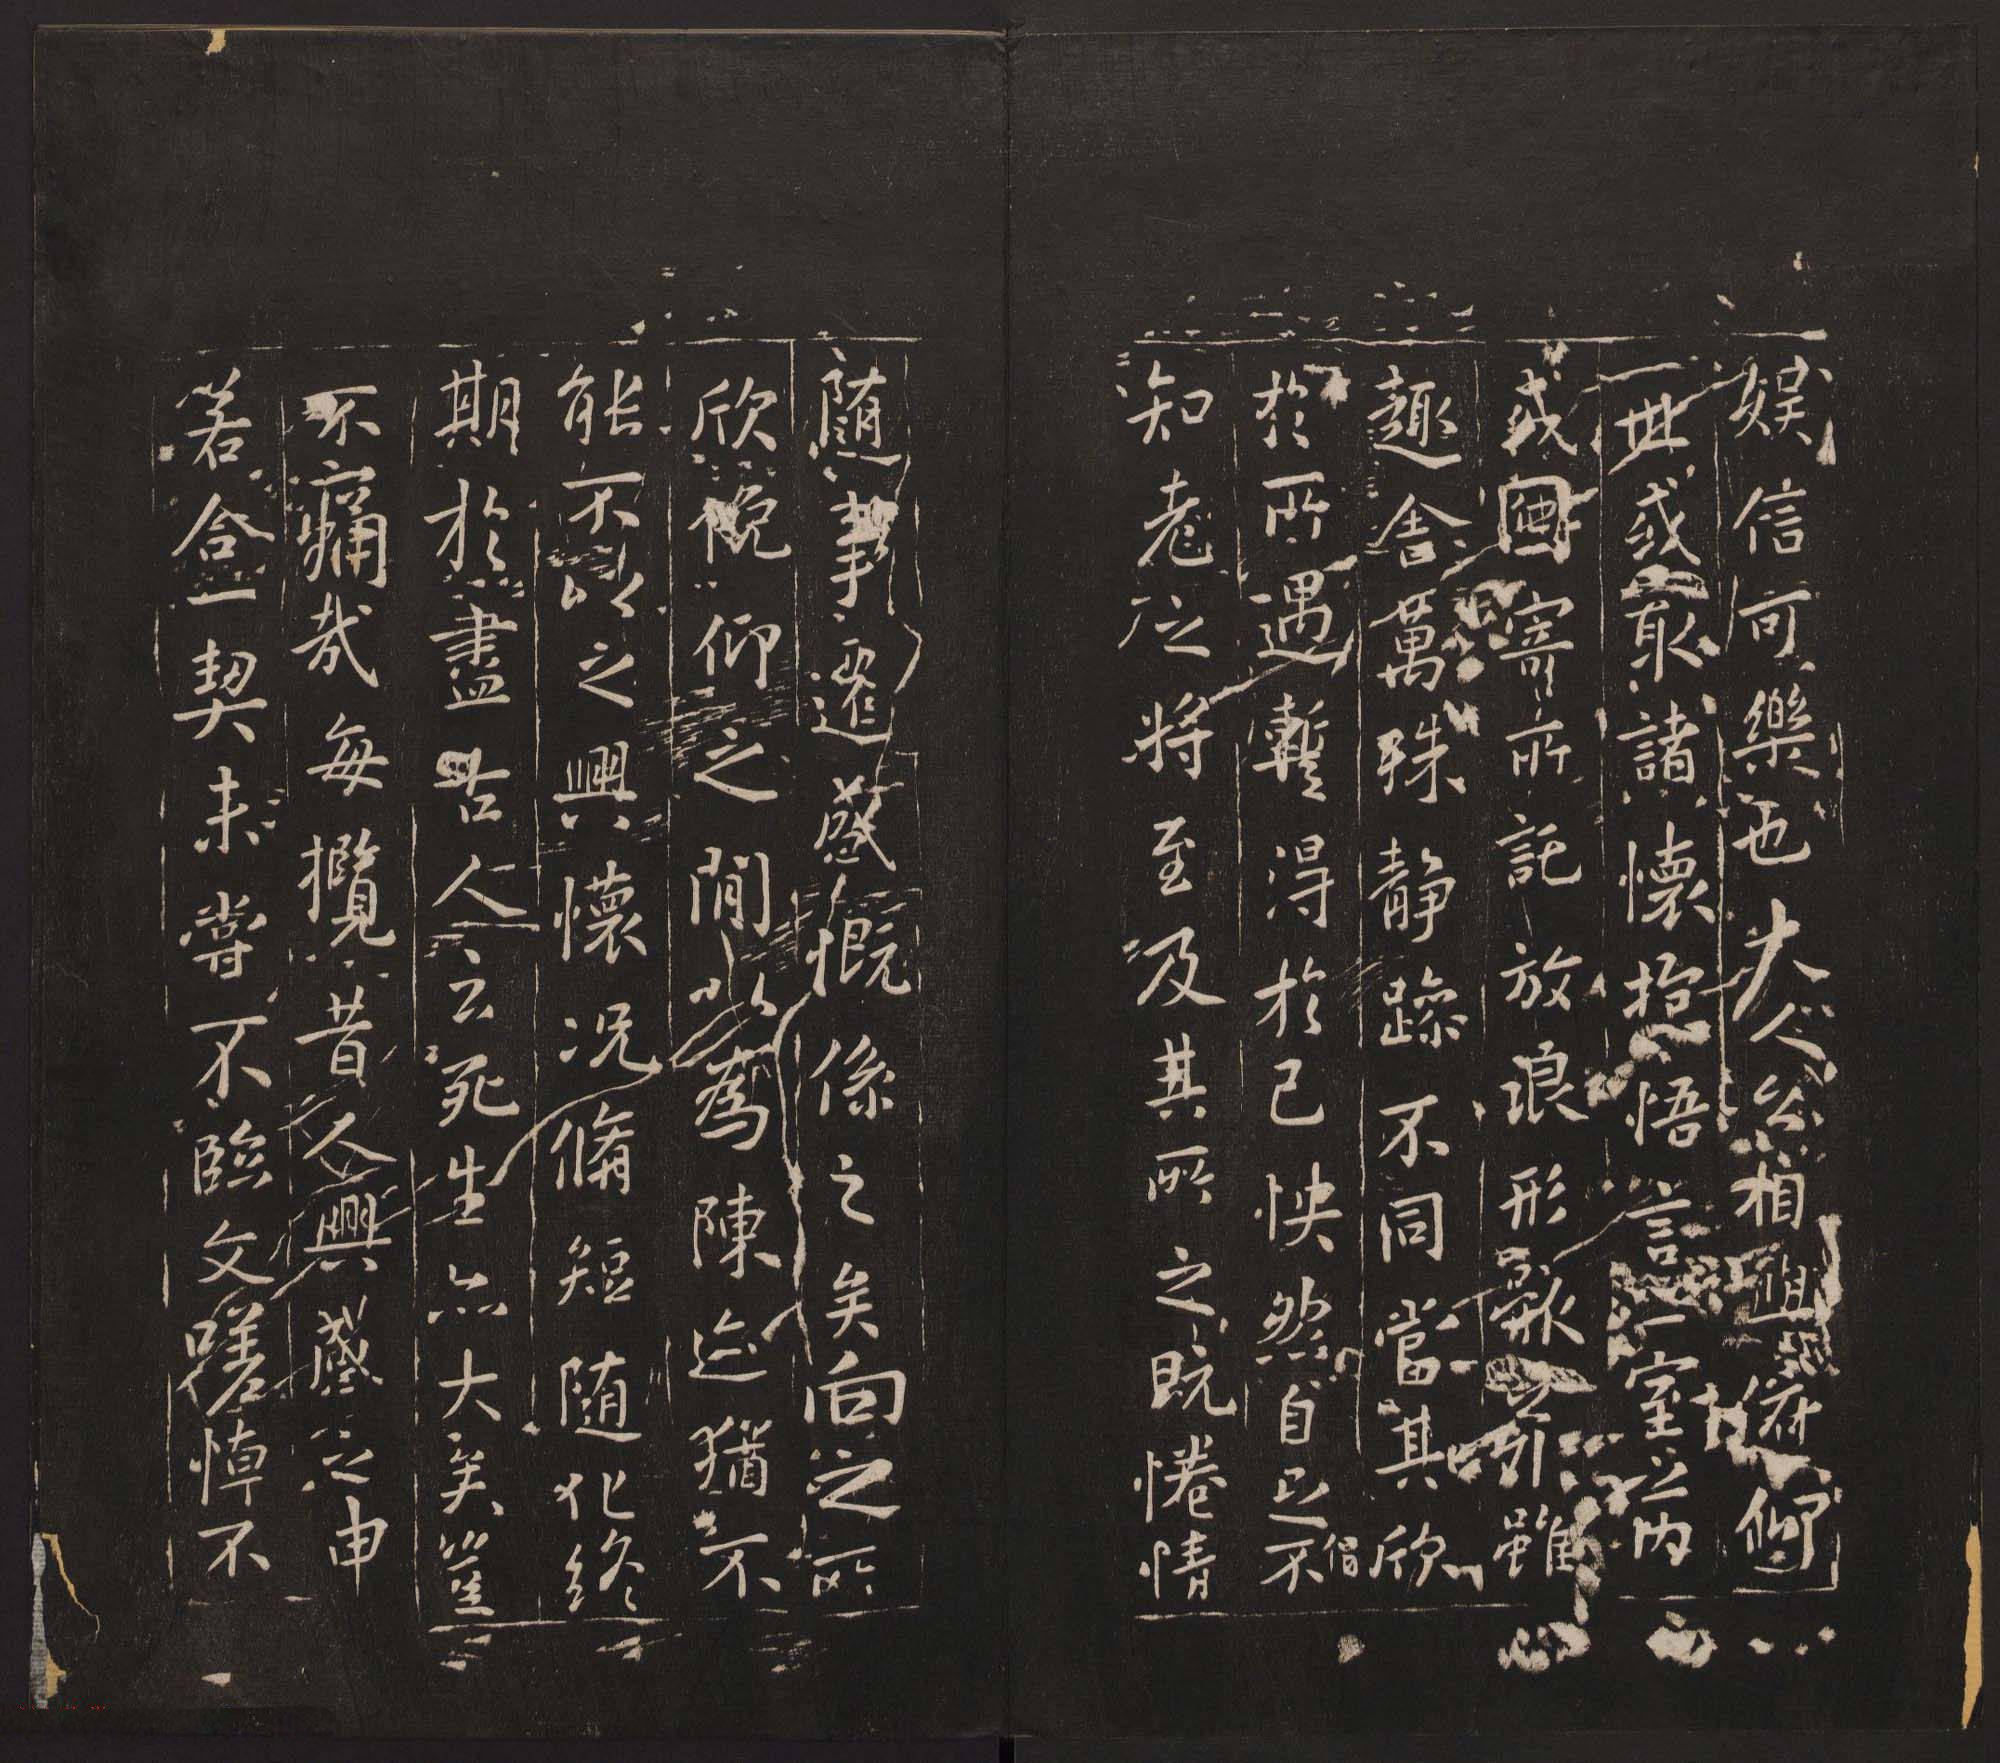 娛信可樂也夫人之相與俯仰
一世或取諸懷抱悟言一室之內
或因寄所託放浪形骸之外雖
趣舍萬殊靜躁不同當其欣
僧
於所遇蹔得於己怏然自足不
知老之將至及其所之既惓情
隨事遷感慨係之矣向之所
欣俛仰之閒以為陳迹猶不
能不以之興懷況脩短隨化終
期於盡古人云死生亦大矣豈
不痛哉每攬昔人興感之由
若合一契未嘗不臨文嗟悼不